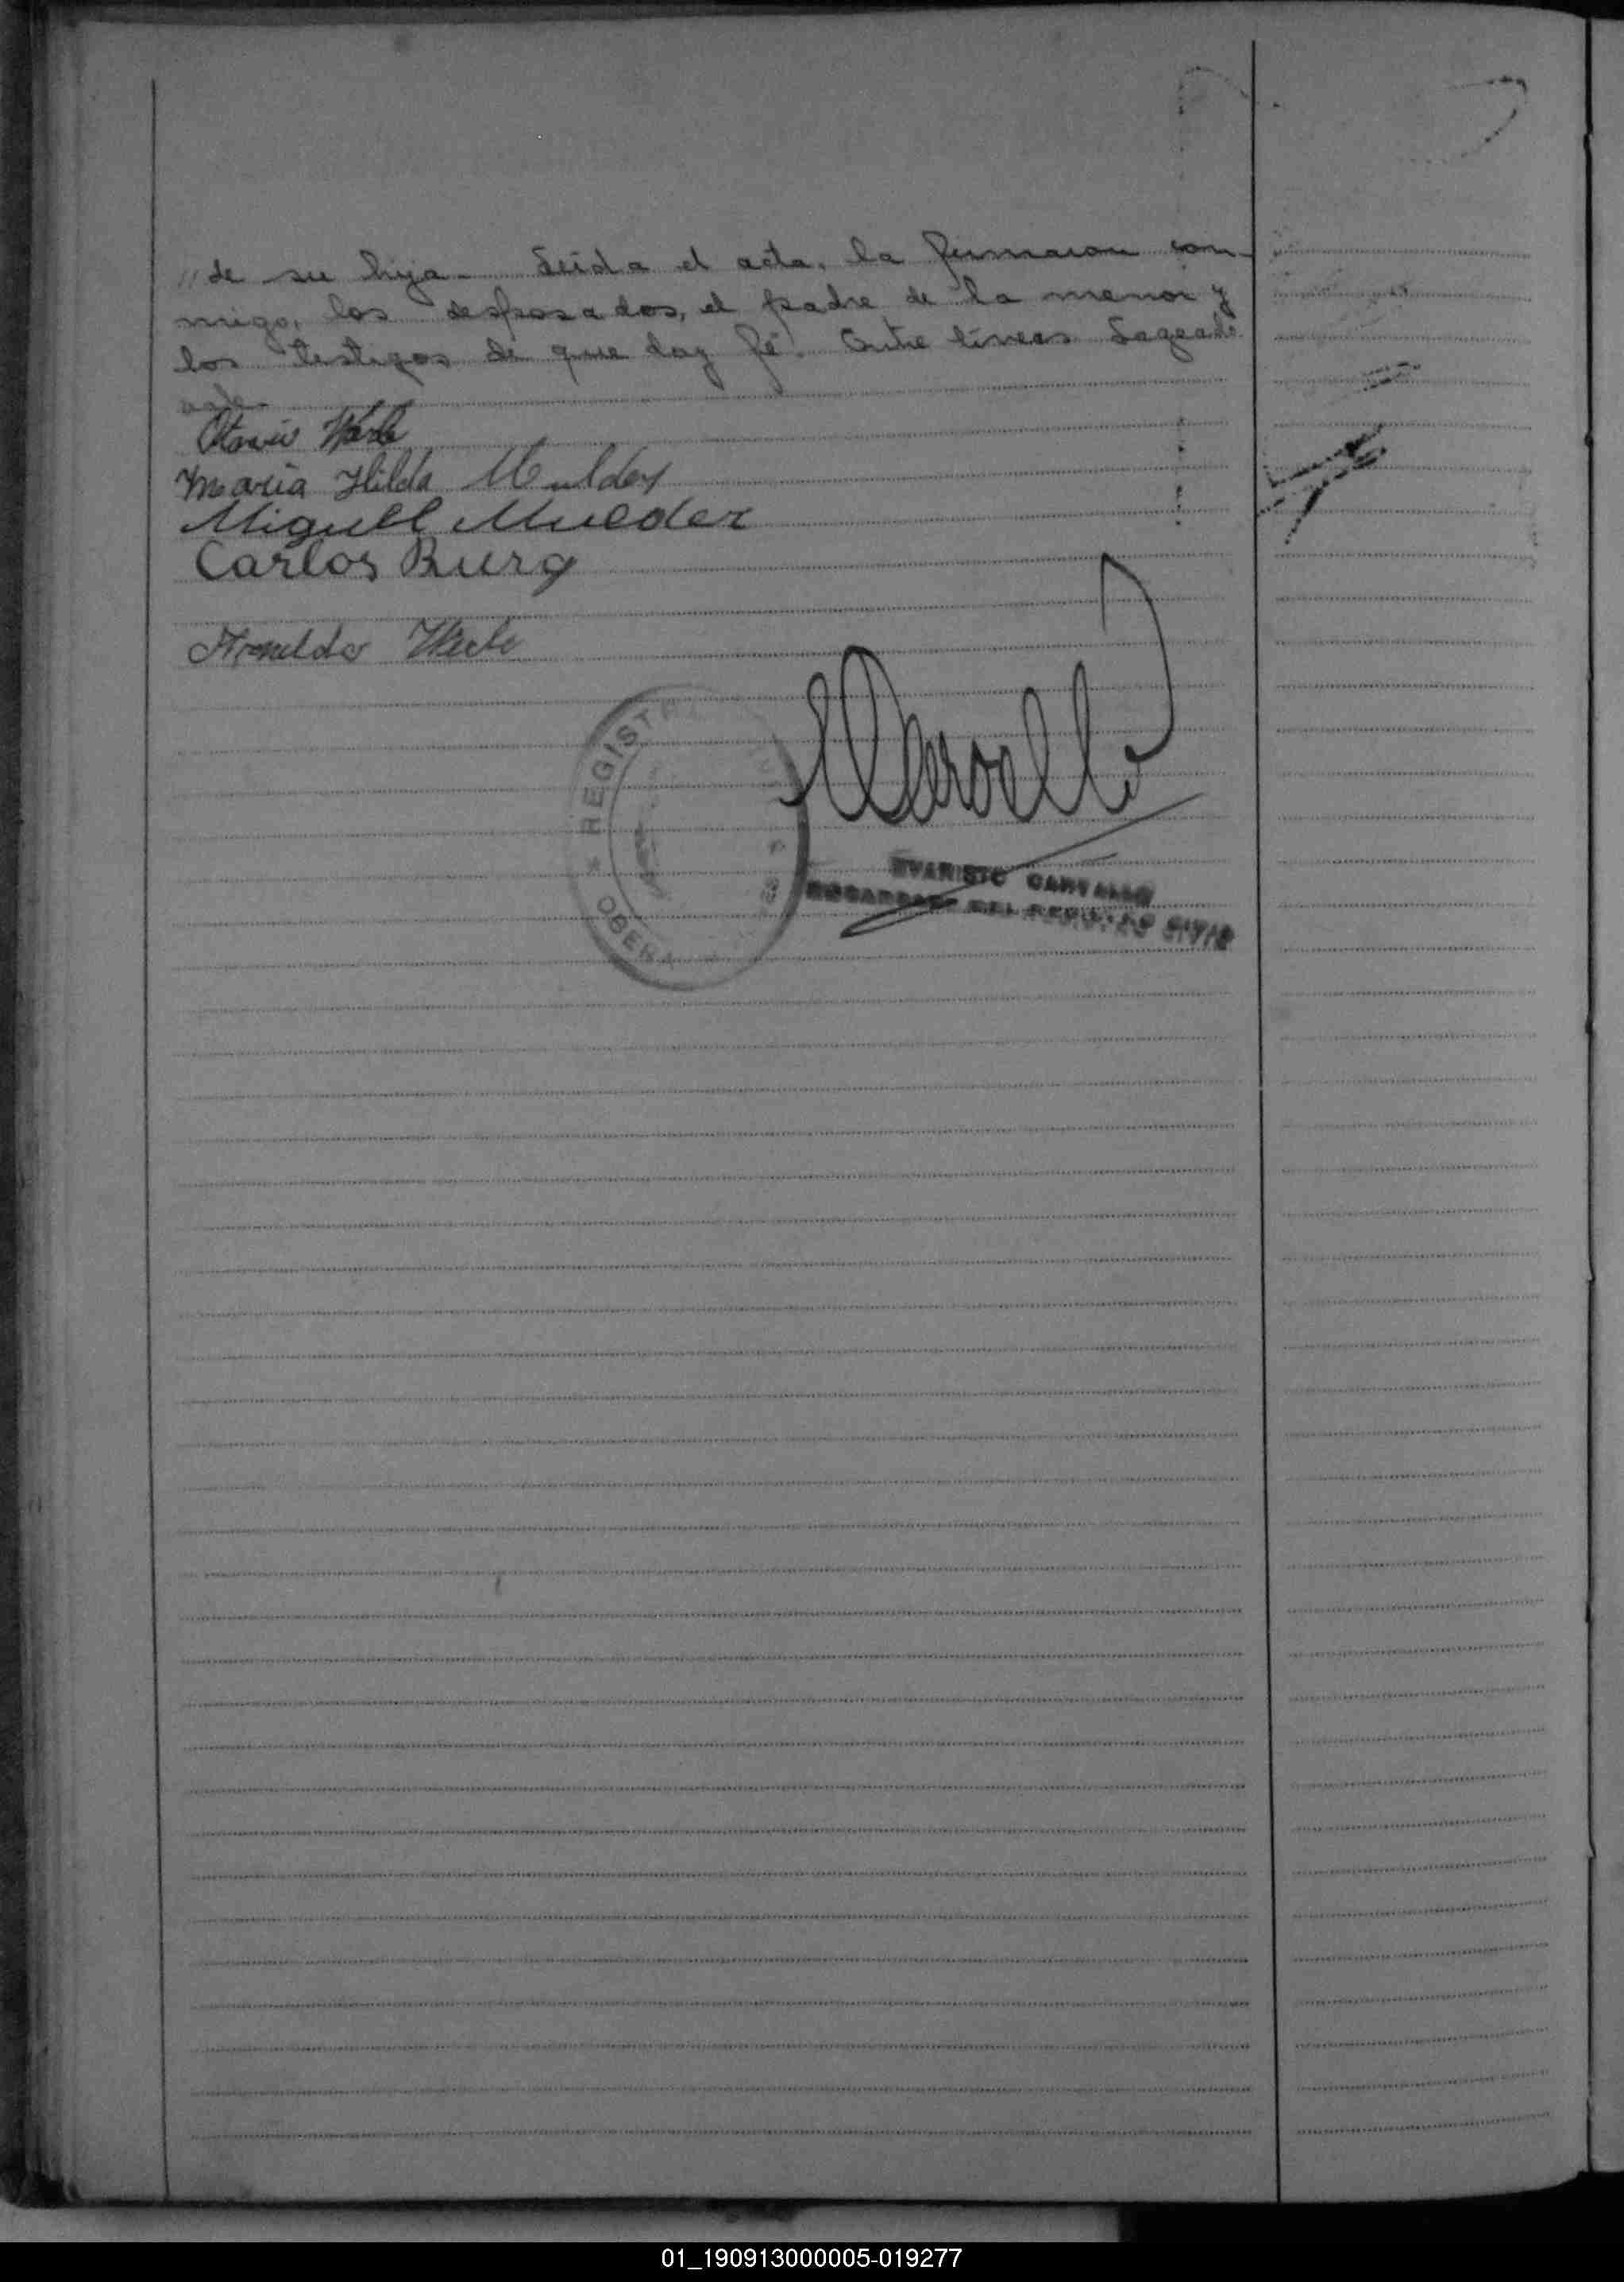 "de su hija. Leida el acta, la firmaron con-
migo, los desposados, el padre de la menor y
los testigos de que doy fé. Entre líneas
vale.
Maria Hilda Mulder
Miguel Mulder
Carlos Burg
Arnildo Werle
REGISTRO CIVIL
OBERA
EVARISTO CARVALLO
ENCARGADO DEL REGISTRO CIVIL
01_190913000005-019277